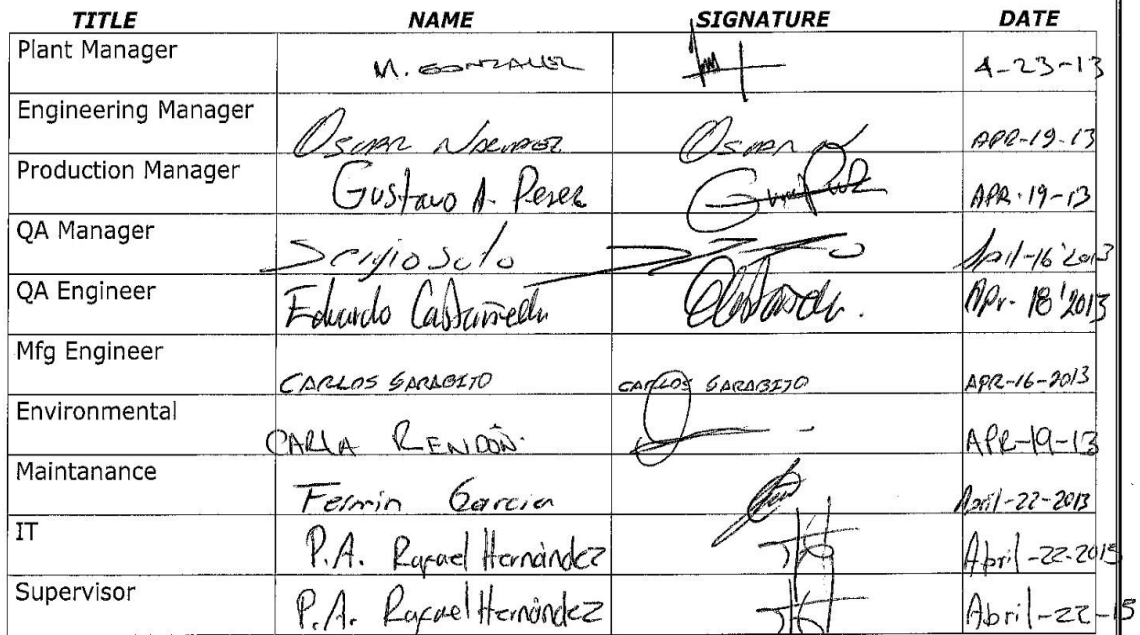 TITLE NAME SIGNATURE DATE
Plant Manager M. GONZALEZ 4-23-13
Engineering Manager OSCAR NARVAEZ OSCAR N APR-19-13
Production Manager Gustavo A. Perez APR-19-13
QA Manager Sergio Soto April-16'2013
QA Engineer Eduardo Castañeda Apr-18'2013
Mfg Engineer CARLOS GARABITO CARLOS GARABITO APR-16-2013
Environmental CARLA RENDÓN. APR-19-13
Maintanance Fermin Garcia April-22-2013
IT P.A. Rafael Hernández Abril-22-2015
Supervisor P.A. Rafael Hernández Abril-22-15